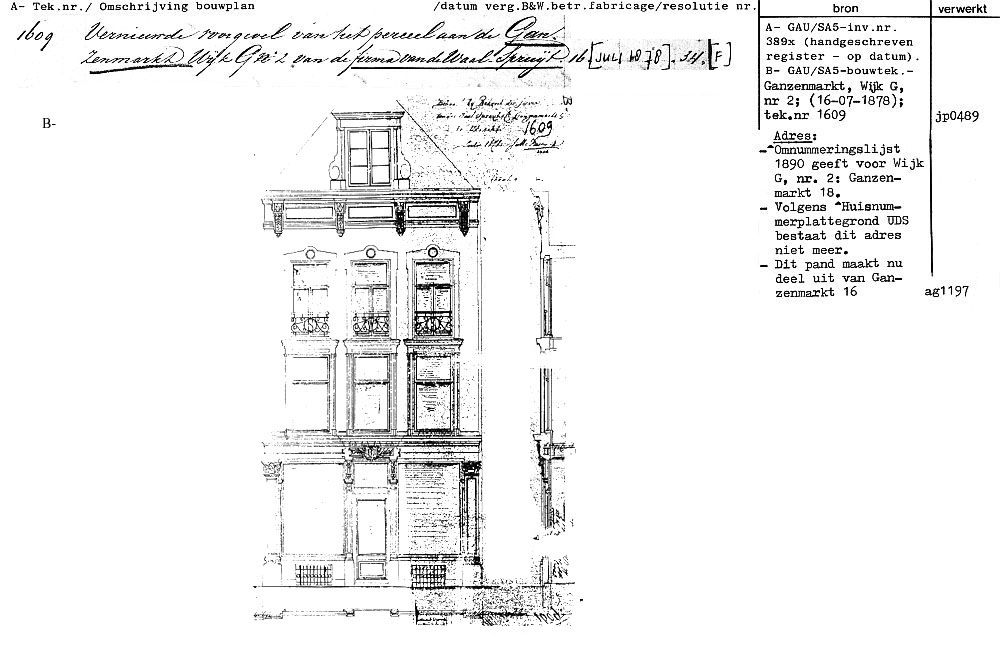 A- Tek.nr./ Omschrijving bouwplan /datum verg.B&W.betr.fabricage/resolutie nr. bron verwerkt
1609 Vernieuwde voorgevel van het perceel aan de Gan-
zenmarkt Wijk G no 2 van de firma van de Waal. Spruijt 16 [JULI 1878]. 34. [F]
A- GAU/SA5-inv.nr.
389x (handgeschreven
register - op datum).
B- GAU/SA5-bouwtek.-
Ganzenmarkt, Wijk G,
nr 2; (16-07-1878);
tek.nr 1609 jp0489
Adres:
- Omnummeringslijst
1890 geeft voor Wijk
G, nr. 2: Ganzen-
markt 18.
- Volgens "Huisnum-
merplattegrond UDS
bestaat dit adres
niet meer.
- Dit pand maakt nu
deel uit van Gan-
zenmarkt 16 ag1197
B-
1609